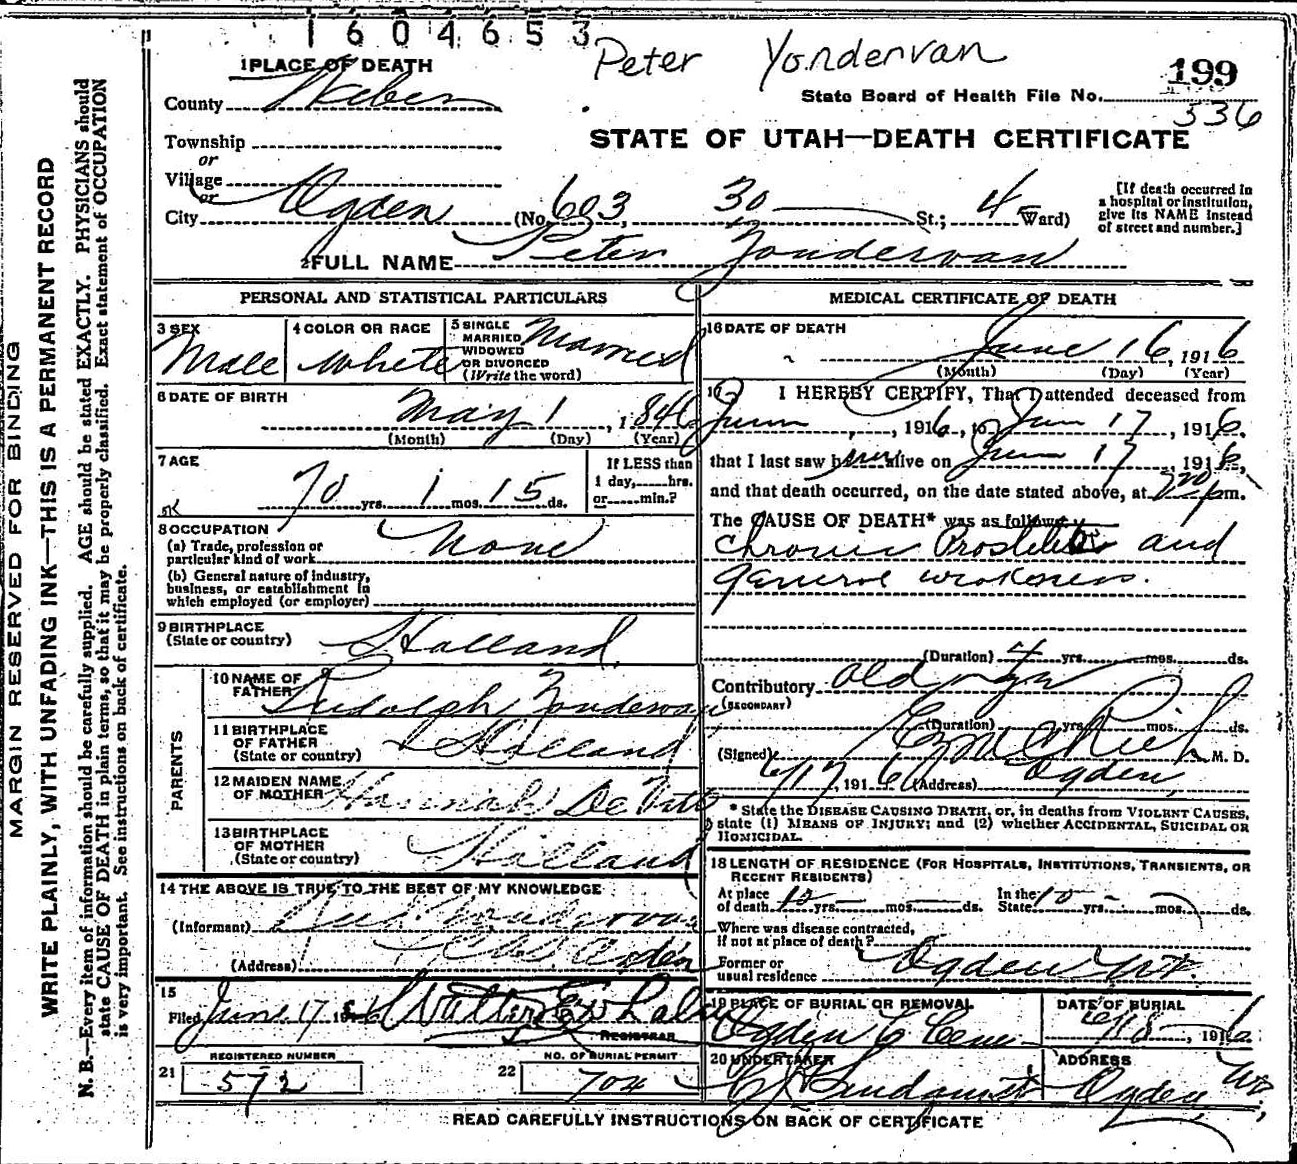 1604653
Peter Yondervan
199
State Board of Health File No.
336
1 PLACE OF DEATH
County Weber
STATE OF UTAH—DEATH CERTIFICATE
Township
or
Village
or
City Ogden (No. 603 30 St.; 4 Ward)
[If death occurred in
a hospital or institution,
give its NAME instead
of street and number.]
2 FULL NAME Peter Yondervan
PERSONAL AND STATISTICAL PARTICULARS
3 SEX
Male
4 COLOR OR RACE
White
5 SINGLE
MARRIED
WIDOWED
OR DIVORCED
(Write the word)
Married
6 DATE OF BIRTH
May 1, 1846
(Month) (Day) (Year)
7 AGE
70 yrs. 1 mos. 15 ds.
If LESS than
1 day, hrs.
or min.?
OK
8 OCCUPATION
(a) Trade, profession or
particular kind of work None
(b) General nature of industry,
business, or establishment in
which employed (or employer)
9 BIRTHPLACE
(State or country) Holland
PARENTS
10 NAME OF
FATHER Rudolph Yondervan
11 BIRTHPLACE
OF FATHER
(State or country) Holland
12 MAIDEN NAME
OF MOTHER Hannah De
13 BIRTHPLACE
OF MOTHER
(State or country) Holland
14 THE ABOVE IS TRUE TO THE BEST OF MY KNOWLEDGE
(Informant)
(Address) Ogden
15
Filed June 17 191
REGISTRAR
REGISTERED NUMBER
21 572
NO. OF BURIAL PERMIT
22 704
MEDICAL CERTIFICATE OF DEATH
16 DATE OF DEATH
June 16, 1916
(Month) (Day) (Year)
17 I HEREBY CERTIFY, That I attended deceased from
, 1916, to Jun 17, 1916,
that I last saw h alive on Jun 17, 1916,
and that death occurred, on the date stated above, at pm.
The CAUSE OF DEATH* was as follows:
Chronic and
general weakness.
(Duration) 4 yrs. mos. ds.
Contributory old age
(SECONDARY)
(Duration) yrs. mos. ds.
(Signed) Ezra C Rich M. D.
6/17, 1916 (Address) Ogden,
* State the DISEASE CAUSING DEATH, or, in deaths from VIOLENT CAUSES,
state (1) MEANS OF INJURY; and (2) whether ACCIDENTAL, SUICIDAL OR
HOMICIDAL.
18 LENGTH OF RESIDENCE (FOR HOSPITALS, INSTITUTIONS, TRANSIENTS, OR
RECENT RESIDENTS)
At place
of death yrs. mos. ds.
In the
State yrs. mos. ds.
Where was disease contracted,
if not at place of death?
Former or
usual residence Ogden Ut.
19 PLACE OF BURIAL OR REMOVAL
Ogden C Cem
DATE OF BURIAL
6/18, 1916
20 UNDERTAKER
ADDRESS
Ogden, Ut.
READ CAREFULLY INSTRUCTIONS ON BACK OF CERTIFICATE
MARGIN RESERVED FOR BINDING
WRITE PLAINLY, WITH UNFADING INK—THIS IS A PERMANENT RECORD
N. B.—Every item of information should be carefully supplied. AGE should be stated EXACTLY. PHYSICIANS should
state CAUSE OF DEATH in plain terms, so that it may be properly classified. Exact statement of OCCUPATION
is very important. See instructions on back of certificate.